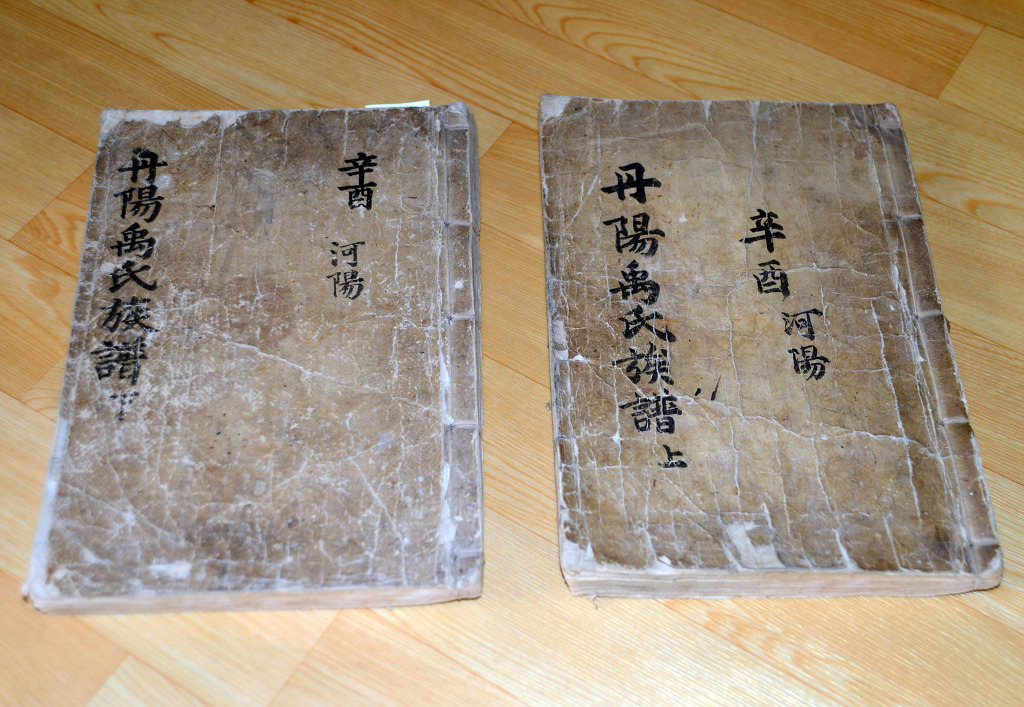 辛酉 河陽
丹陽禹氏族譜 下
辛酉 河陽
丹陽禹氏族譜 上